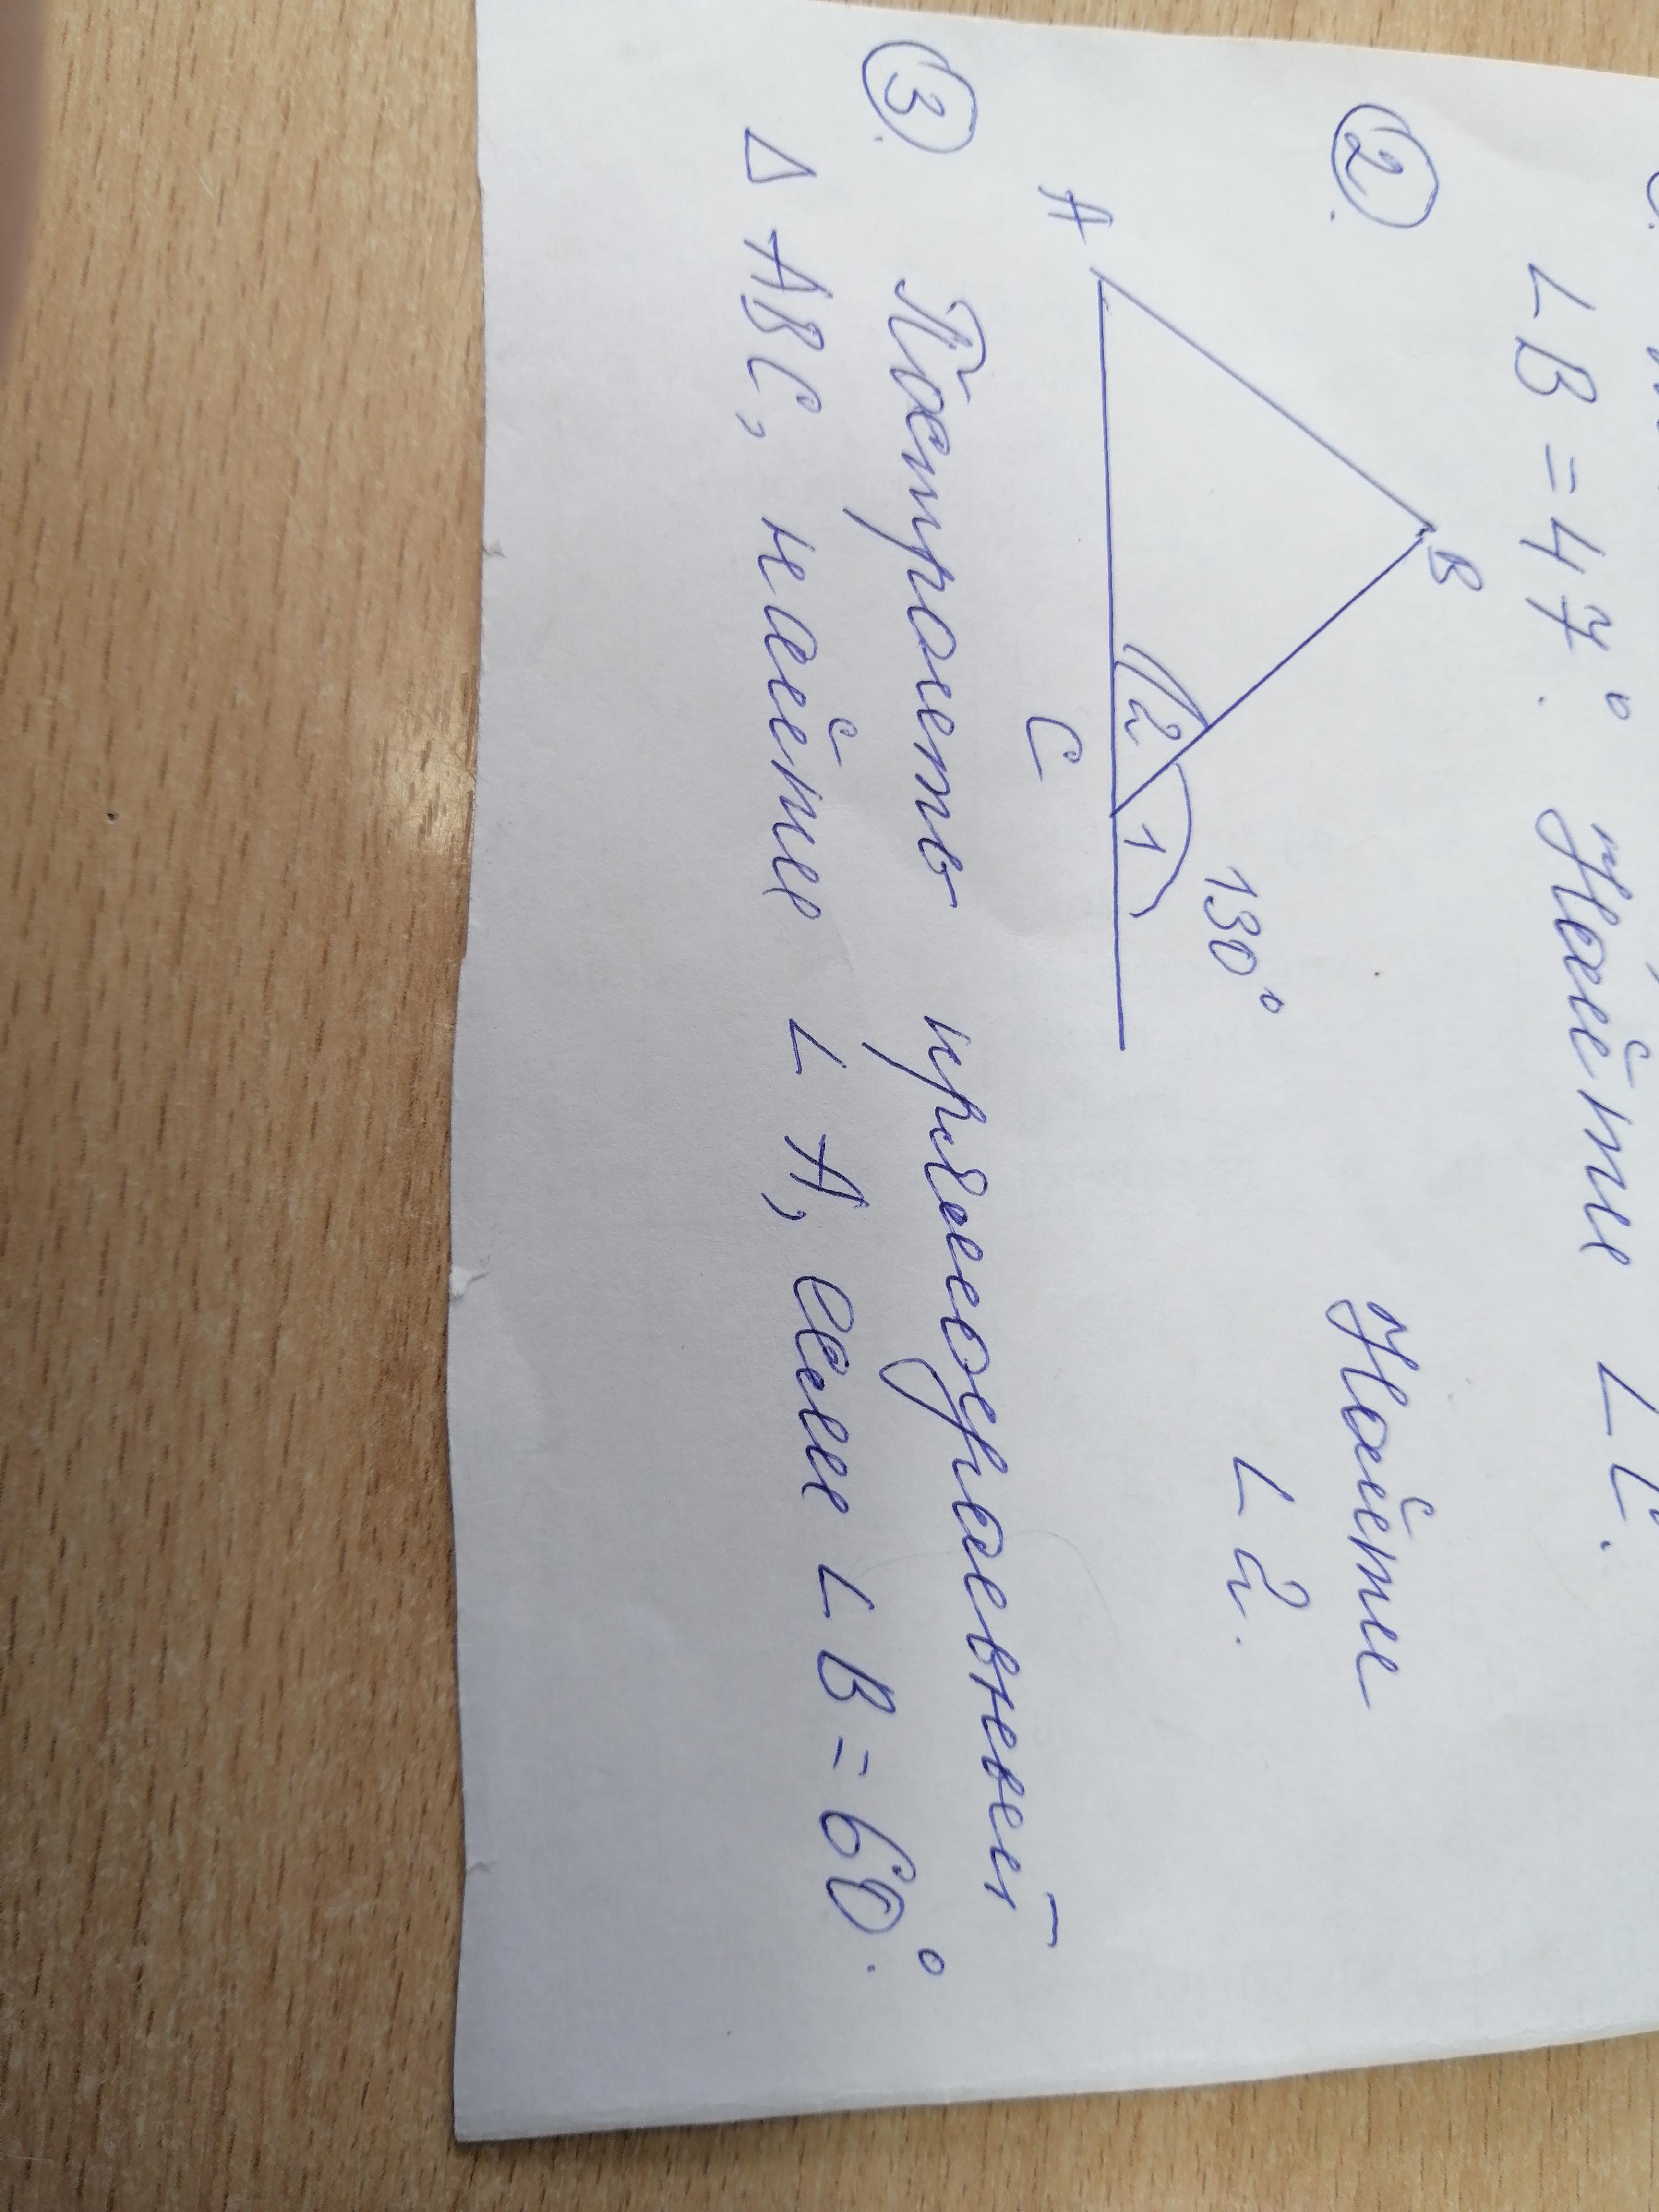 ∠B = 47°. Найти ∠C.
②. Найти
∠2.
A B C 2 1 130°
③. Построить прямоугольный
Δ ABC, найти ∠A, если ∠B = 60°.